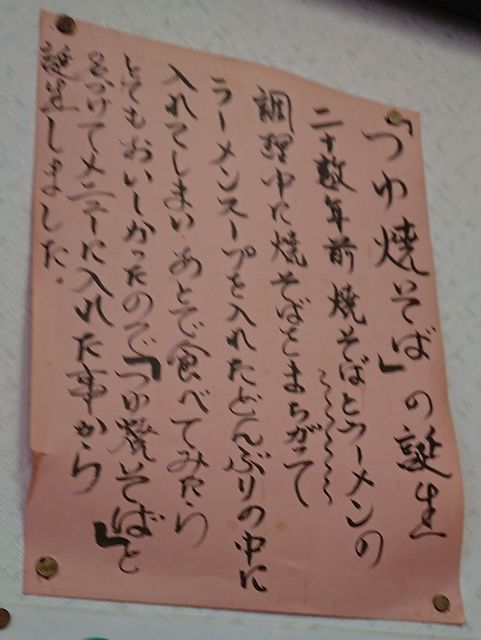 「つゆ焼そば」の誕生
二十数年前焼そばとラーメンの
調理中に焼そばとまちがって
ラーメンスープを入れたどんぶりの中に
入れてしまいあとで食べてみたら
とてもおいしかったので「つゆ焼そば」と
名づけてメニューに入れた事から
誕生しました。